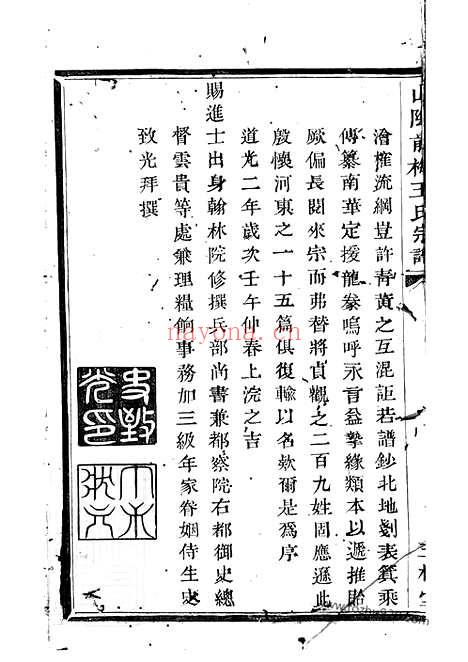 山陰前梅王氏宗譜
澮榷流綱豈許青黃之互混詎若譜鈔北地剗表簣乘
傳纂南華定援龍豢嗚呼永言益摯緣類本以遞推貽
厥偏長閱來宗而弗替將貞觀之二百九姓固應遜此
殷懷河東之一十五篇俱復輸以名欵爾是為序
道光二年歲次壬午仲春上浣之吉
賜進士出身翰林院修撰兵部尚書兼都察院右都御史總
督雲貴等處兼理糧餉事務加三級年家眷姻侍生史
致光拜撰
史致光印
nayona.cn